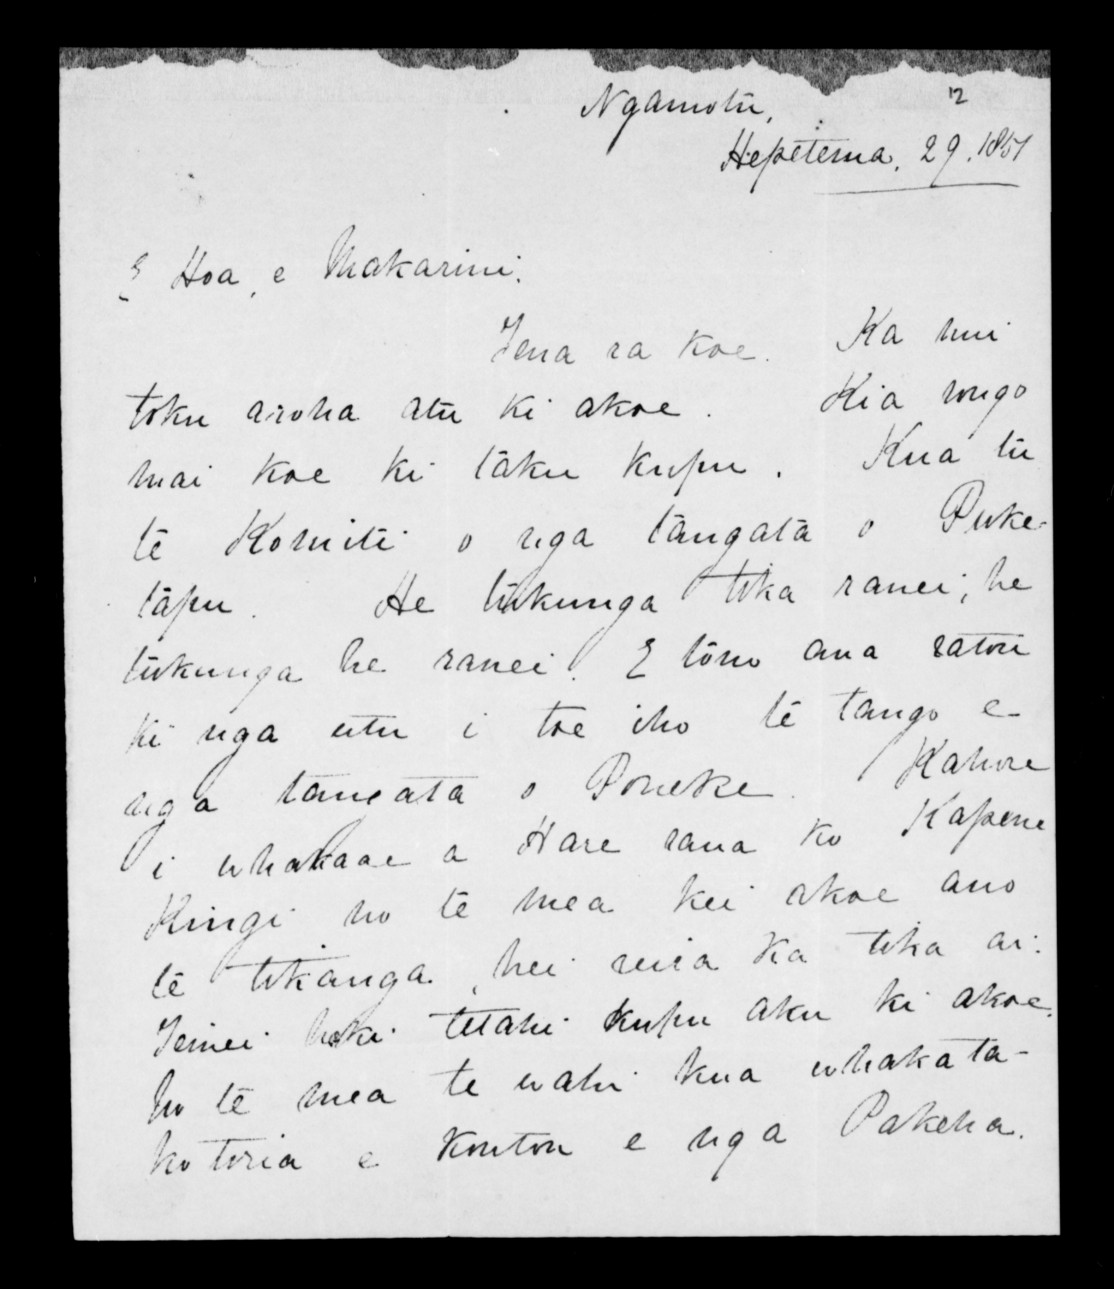 12
Ngamotu,
Hepetema. 29. 1851
E Hoa, e Makarini.
Tena ra koe. Ka nui
toku aroha atu ki akoe. Kia rongo
mai koe ki taku kupu. Kua tu
te Komiti o nga tangata o Puke-
tapu. He tukunga tika ranei; he
tukunga he ranei. E tono ana ratou
ki nga utu i toe iho te tango e
nga tangata o Poneke. Kahore
i whakaae a Hare raua ko Kapene
Kingi no te mea kei akoe ano
te tikanga, hei reira ka tika ai.
Tenei hoki tetahi kupu aku ki akoe.
No te mea te wahi kua whakata-
kotoria e koutou e nga Pakeha.